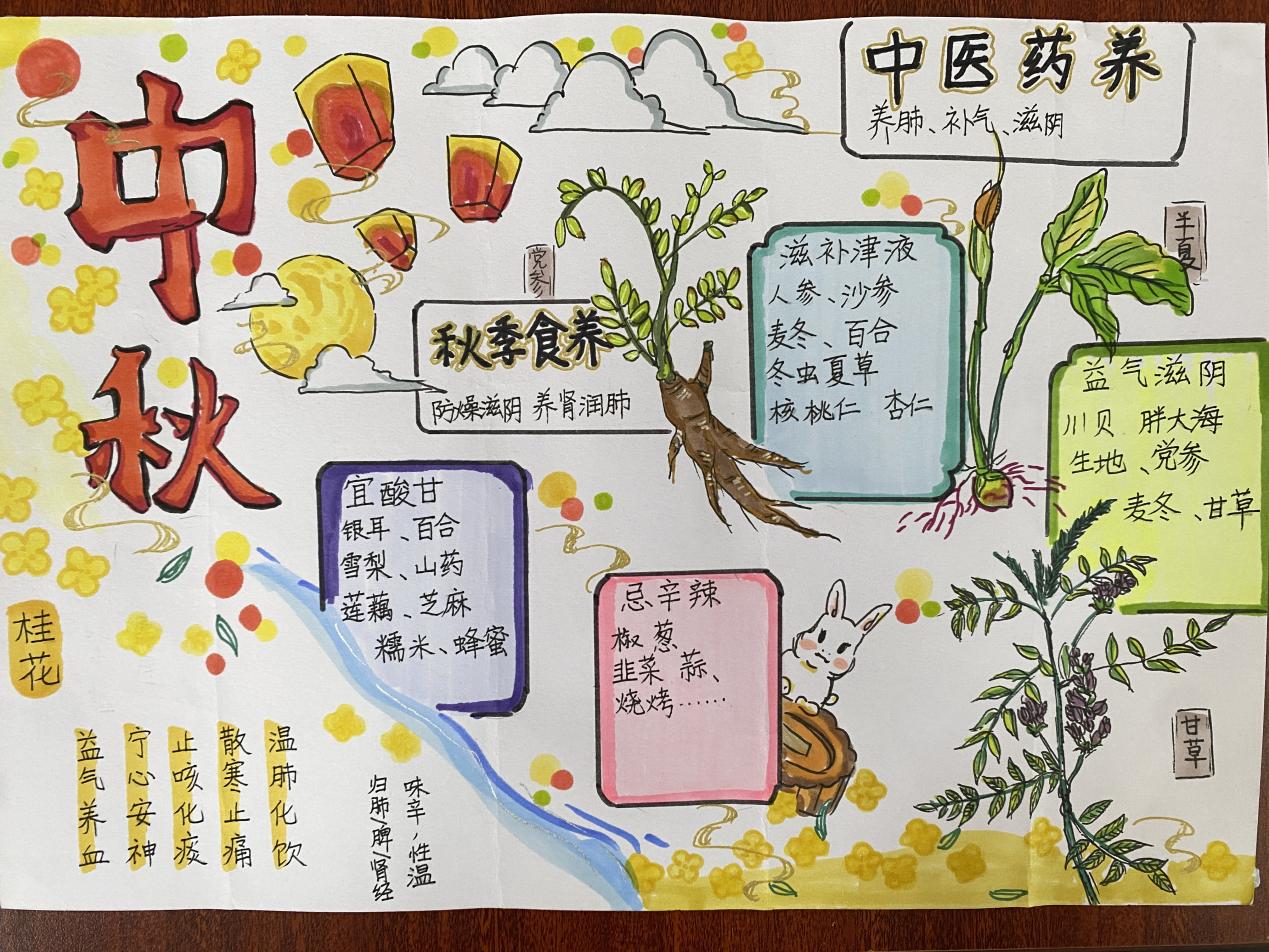 中秋
中医药养
养肺、补气、滋阴
党参
半夏
秋季食养
防燥滋阴 养肾润肺
滋补津液
人参、沙参
麦冬、百合
冬虫夏草
核桃仁 杏仁
益气滋阴
川贝 胖大海
生地、党参
麦冬、甘草
宜酸甘
银耳、百合
雪梨、山药
莲藕、芝麻
糯米、蜂蜜
忌辛辣
椒 葱
韭菜 蒜、
烧烤……
桂花
甘草
温肺化饮
散寒止痛
止咳化痰
宁心安神
益气养血
味辛,性温
归肺、脾、肾经